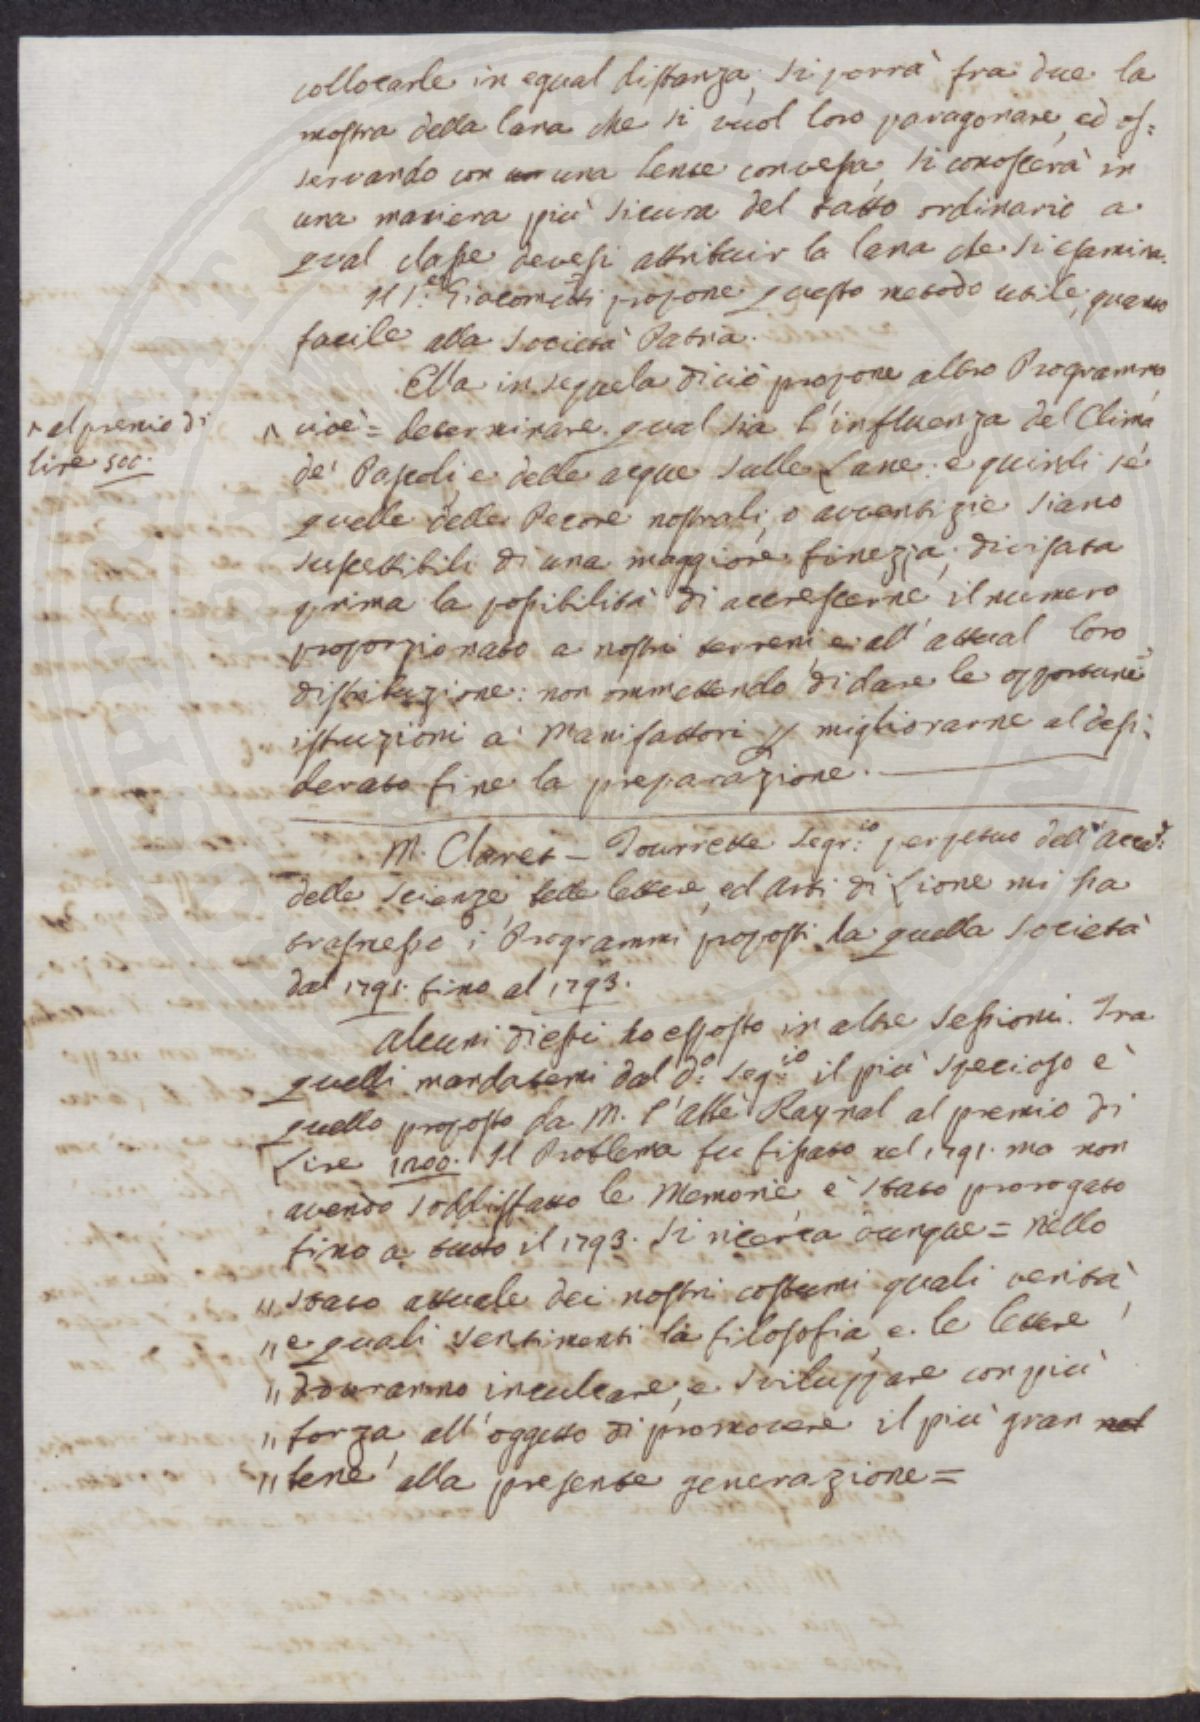 collocarle in egual distanza; si porrà fra due la
mostra della lana che si vuol loro paragonare, ed os=
servando con un una lente convessa, si conoscerà in
una maniera più sicura del tatto ordinario a
qual classe devesi attribuir la lana che si esamina.
Il S.r Giacometti propone questo metodo utile, quanto
facile alla Società Patria.
Ella in sequela di ciò propone altro Programma
^ al premio di
lire 500.
^ cioè = determinare qual sia l'influenza del Clima
de' Pascoli, e delle acque sulle Lane: e quindi se
quelle delle Pecore nostrali, o avventizie siano
suscettibili di una maggiore finezza, divisata
prima la possibilità di accrescerne il numero
proporzionato a nostri terreni e all'attual loro
distribuzione: non ommettendo di dare le opportune
istruzioni a' Manifattori p migliorarne al desi=
derato fine la preparazione.
M. Claret - Tourrette Segr.io perpetuo dell'Accad.
delle Scienze belle lettere, ed Arti di Lione mi ha
trasmesso i Programmi proposti da quella Società
dal 1791. fino al 1793.
Alcuni di essi ho esposto in altre Sessioni. Tra
quelli mandatemi dal d.o Seg.io il più specioso è
quello proposto da M. l'abbè Raynal al premio di
Lire 1200. Il Problema fu fissato nel 1791. ma non
avendo soddisfatto le Memorie è stato prorogato
fino a tutto il 1793. Si ricerca dunque = nello
" stato attuale dei nostri costumi quali verità
" e quali sentimenti la filosofia, e le lettere
" dovranno inculcare, e sviluppare con più
" forza, all'oggetto di promovere il più gran
" bene alla presente generazione =